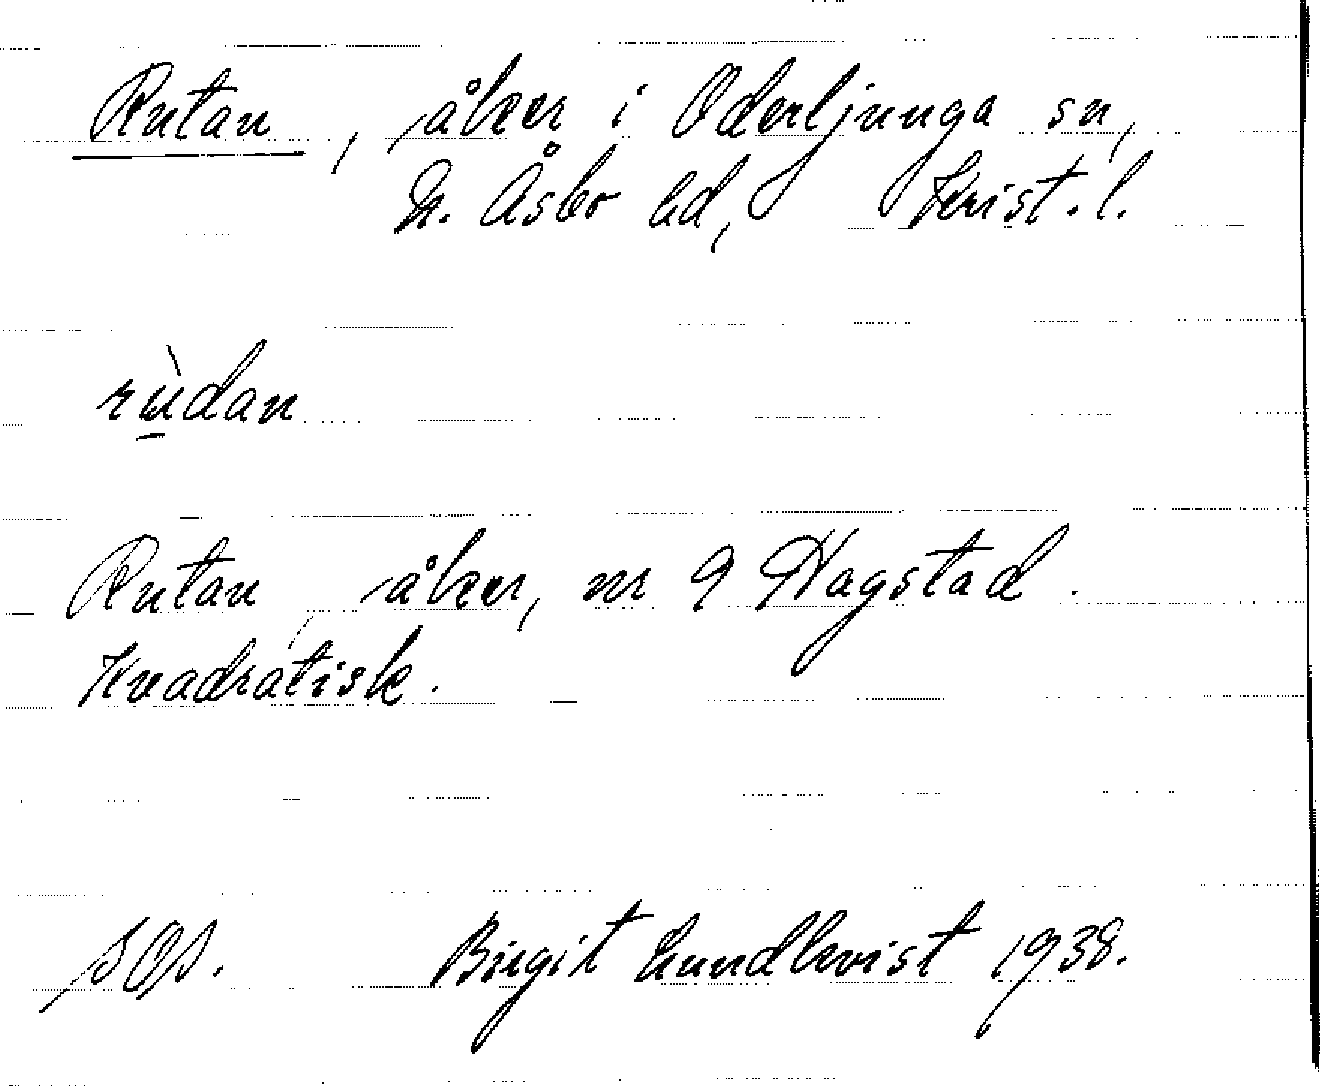 Rutan, åker i Oderljunga sn,
N. Åsbo hd, Krist. l.
rùdan
Rutan, åker, nr 9 Hagstad.
Kvadratisk.
SOS. Birgit Lundkvist 1938.